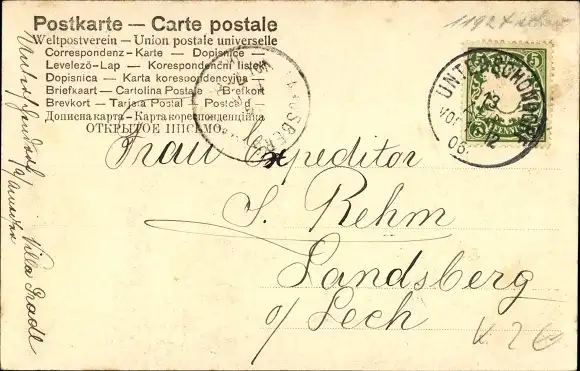 Postkarte — Carte postale
Weltpostverein — Union postale universelle
Correspondenz-Karte — Dopisnice —
Levelező-Lap — Korespondenční lístek
Dopisnica — Karta korespondencyjna —
Briefkaart — Cartolina Postale — Brefkort
Brevkort — Tarjeta Postal — Postcard —
Дописна карта — Карта кореспонденційна
ОТКРЫТОЕ ПИСЬМО
11924
5
UNTERSCHONDORF
13
VOR 12
06
5 PFENNIG 5
LANDSBERG
Frau Expeditor
J. Rehm
Landsberg
o/ Lech
Unterschondorf
a/ Ammersee
Villa